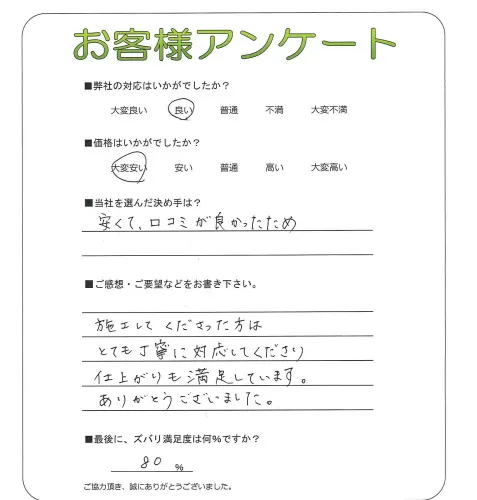 お客様アンケート
■弊社の対応はいかがでしたか？
大変良い 良い 普通 不満 大変不満
■価格はいかがでしたか？
大変安い 安い 普通 高い 大変高い
■当社を選んだ決め手は？
安くて、口コミが良かったため
■ご感想・ご要望などをお書き下さい。
施工してくださった方は
とても丁寧に対応してくださり
仕上がりも満足しています。
ありがとうございました。
■最後に、ズバリ満足度は何%ですか？
80 %
ご協力頂き、誠にありがとうございました。